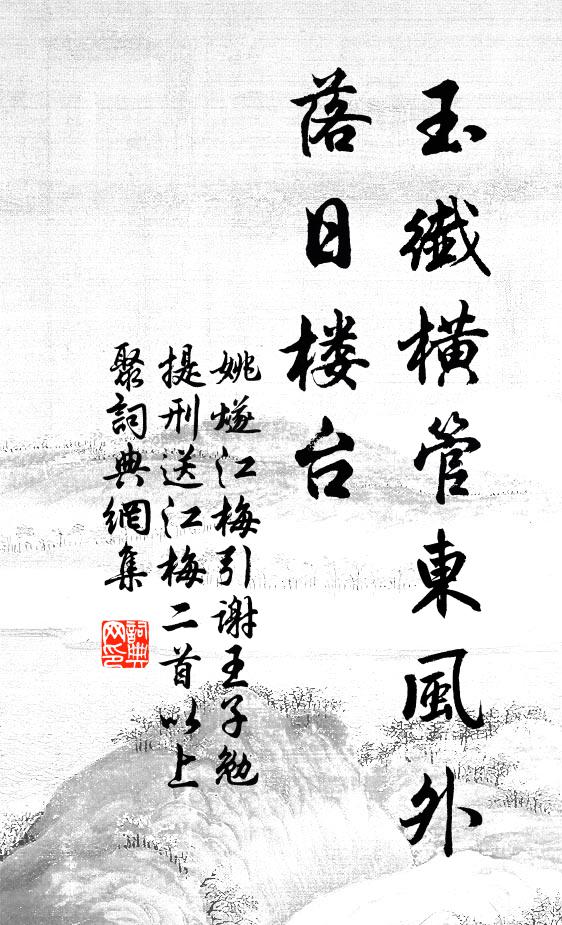 玉纖橫管東風外
落日楼台
姚燧江梅引谢王子勉
提刑送江梅二首以上
聚詞典網集
詞典
网印